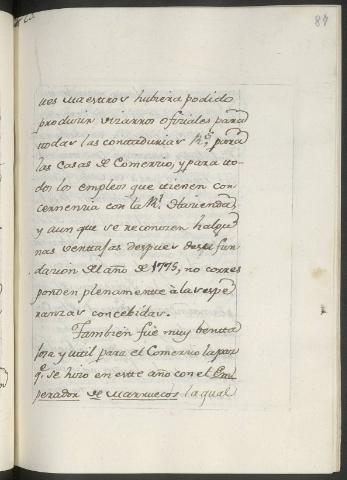 87
tros Maestros hubiera podido
producir vizarros oficiales para
todas las contadurias R.s para
las Casas de Comercio, y para to-
dos los empleos que tienen con
cernencia con la R.l Hacienda,
y aun que se reconocen halgu
nas ventajas despues de su fun
dacion del año de 1775, no corres
ponden plenamente à las espe
ranzas concebidas.
Tambien fue muy venta
josa y util para el Comercio la paz
q.e se hizo en este año con el Em
perador de Marruecos la qual